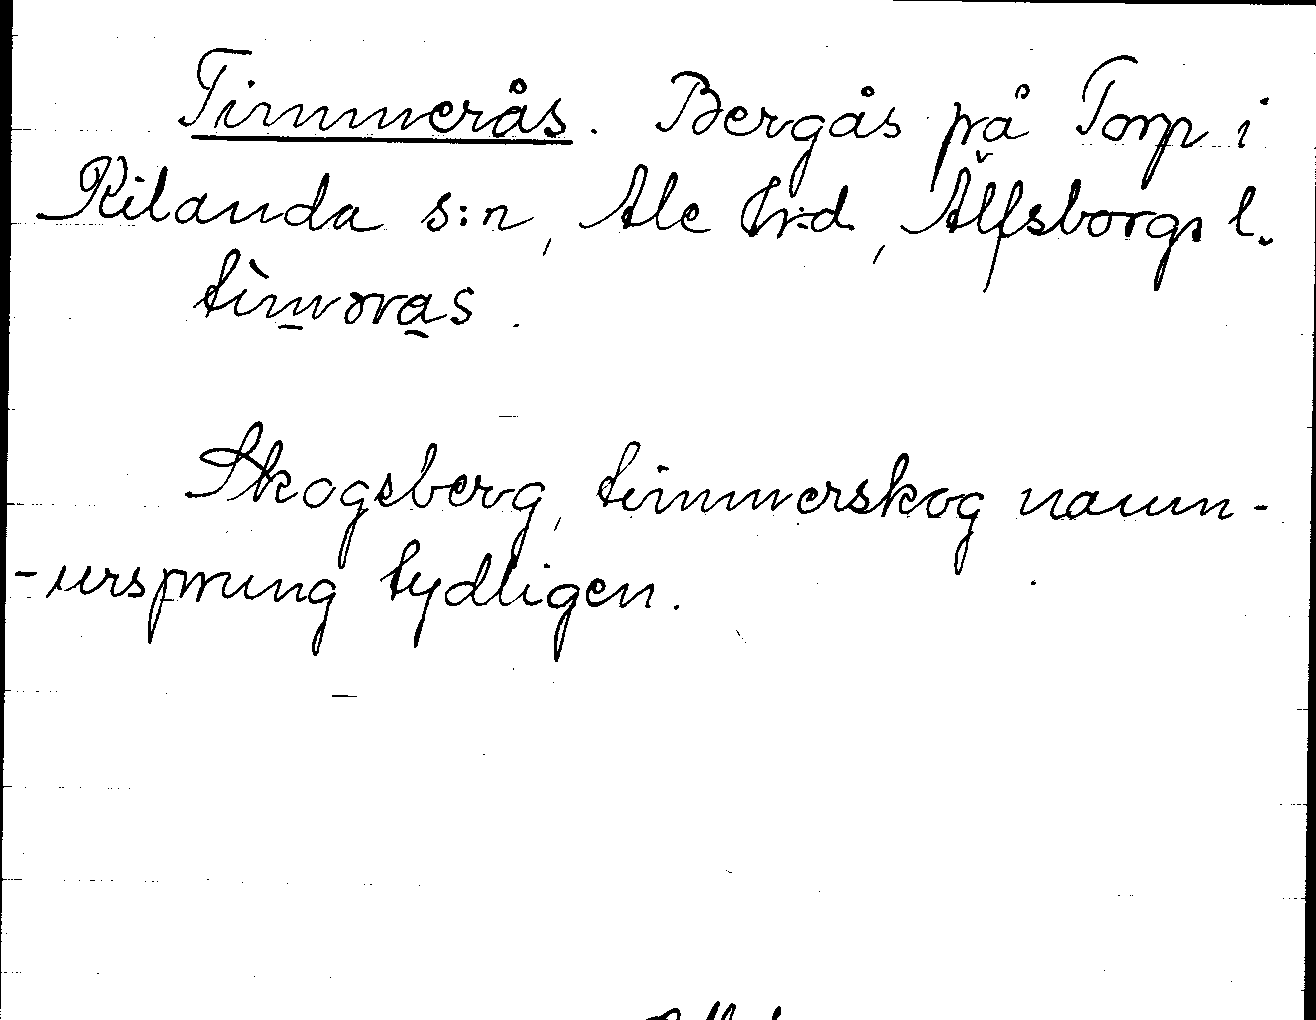 Timmerås. Bergås på Torp i
Kilanda s:n, Ale hr:d, Älfsborgs l.
Skogsberg, timmerskog namn-
-ursprung tydligen.